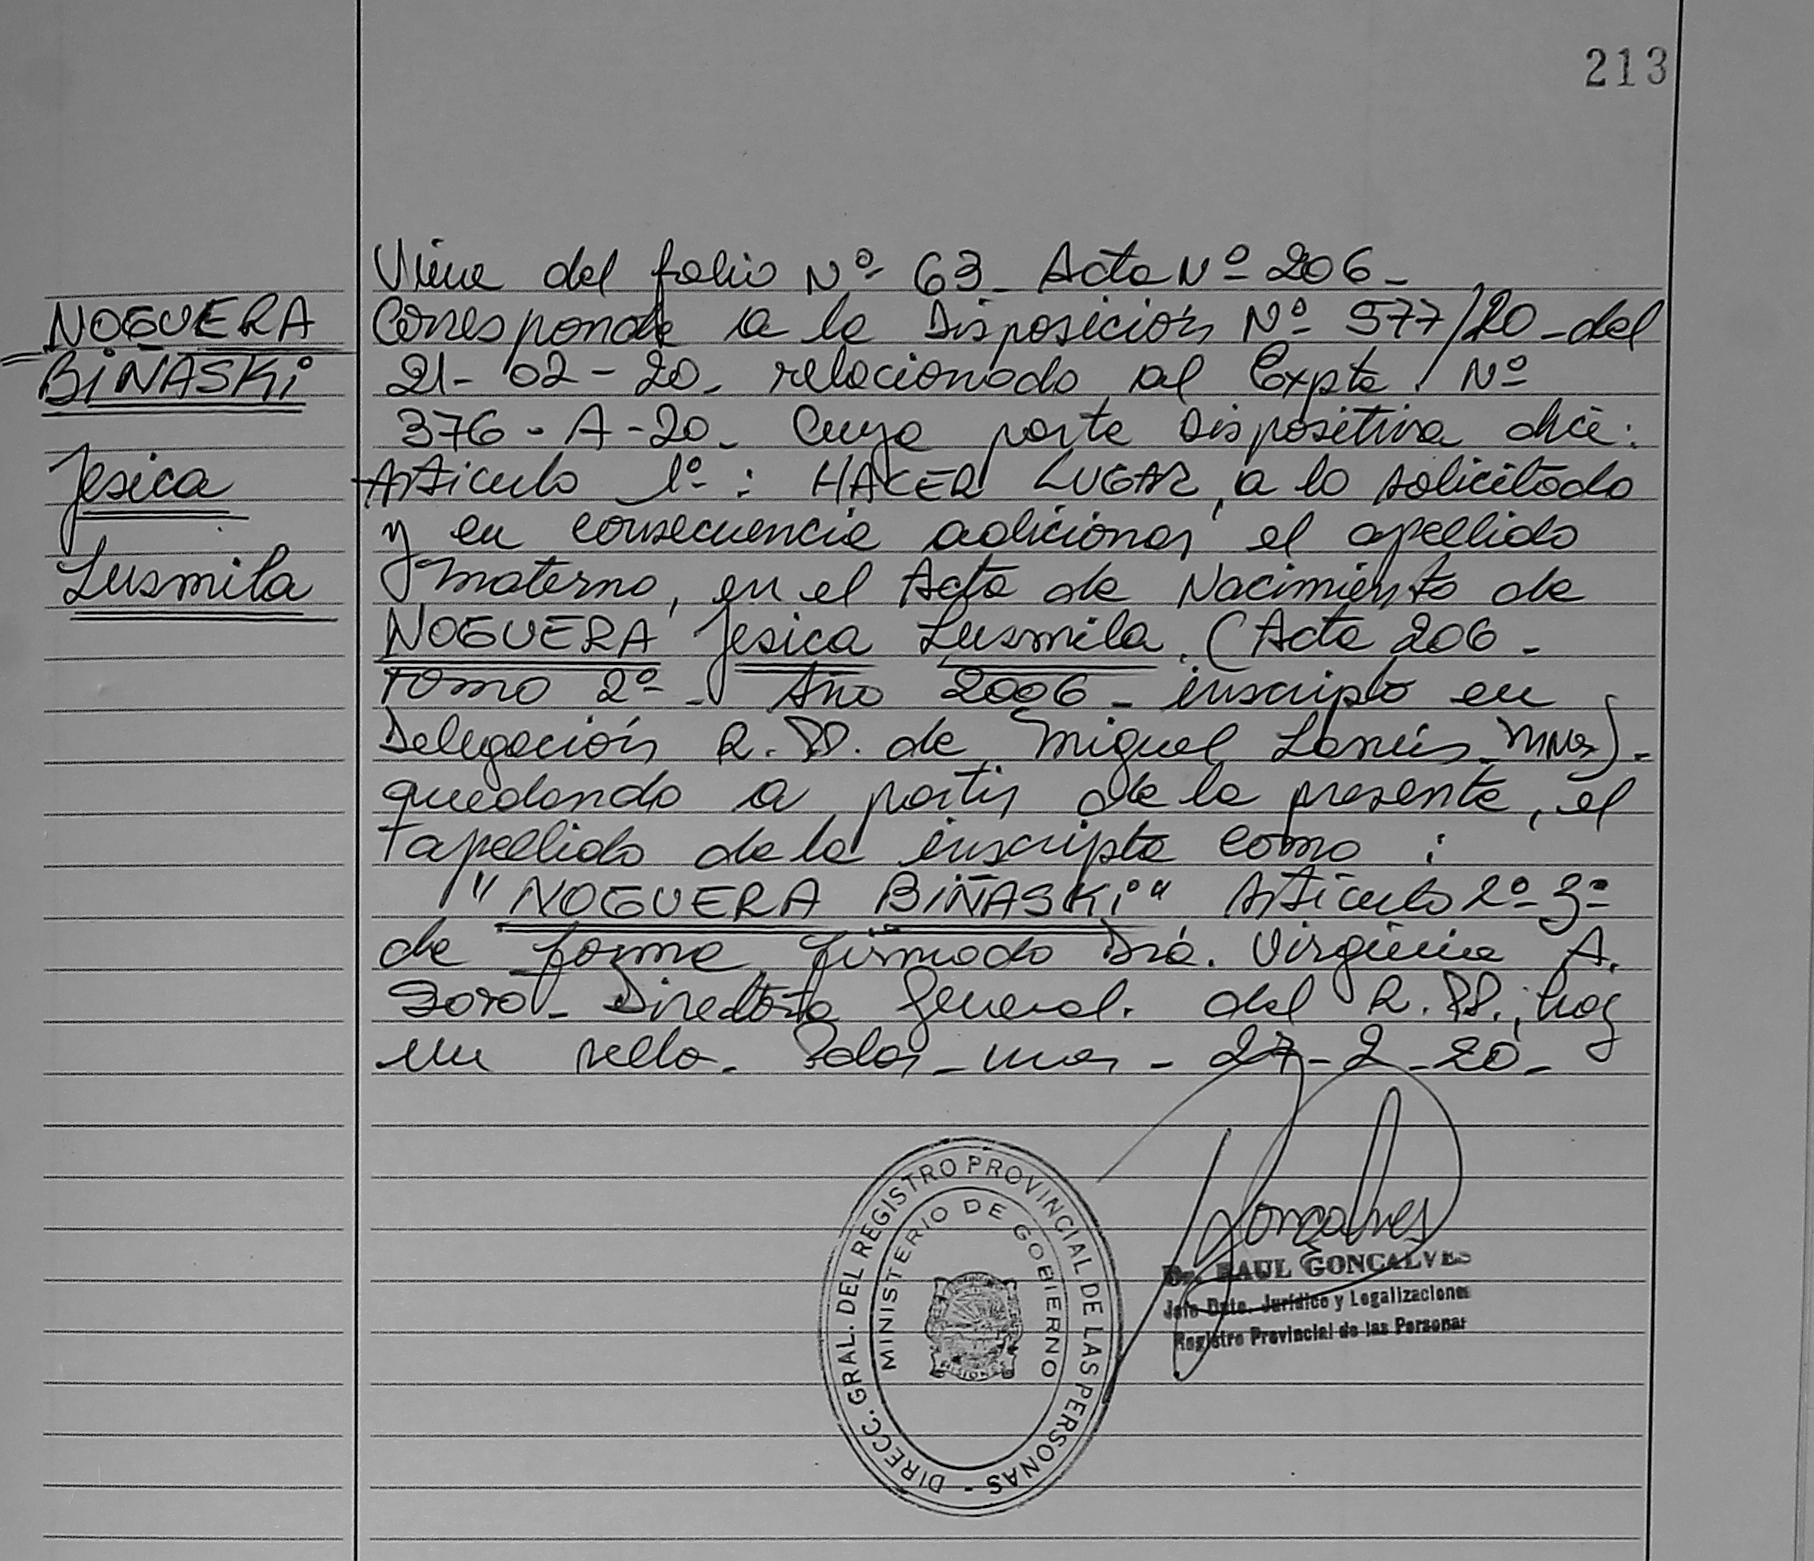 213
NOGUERA
BIÑASKI
Jesica
Lusmila
Viene del folio Nº 63_ Acta Nº 206_
Corresponde a la Disposición Nº 577/20_ del
21-02-20_ relacionado al Expte. Nº
376-A-20_ Cuya parte Dispositiva dice:
Artículo 1º: HACER LUGAR, a lo solicitado
y en consecuencia adicionar el apellido
materno, en el Acta de Nacimiento de
NOGUERA Jesica Lusmila. (Acta 206_
Tomo 2º_ Año 2006_ inscripto en
Delegación R.PP. de Miguel Lanús_ Mnes)_
quedando a partir de la presente, el
apellido de la inscripta como:
"NOGUERA BIÑASKI" Artículo 2º 3º
de forma, firmado Dra. Virginia A.
Directora General. del R.PP., hay
un sello_ Pdas_ Mnes_ 27-2-20_
DIRECC. GRAL. DEL REGISTRO PROVINCIAL DE LAS PERSONAS -
MINISTERIO DE GOBIERNO
MISIONES
Goncalves
Dr. RAUL GONCALVES
Jefe Dpto. Jurídico y Legalizaciones
Registro Provincial de las Personas